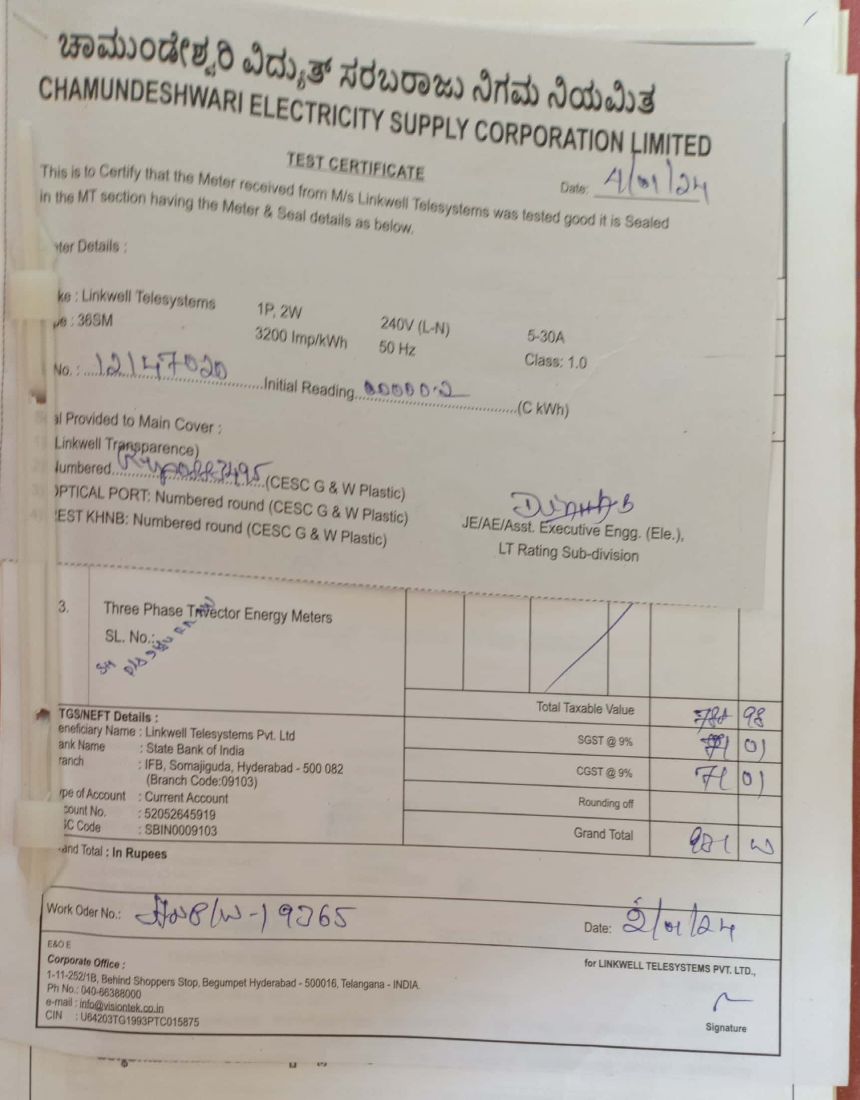 ಚಾಮುಂಡೇಶ್ವರಿ ವಿದ್ಯುತ್ ಸರಬರಾಜು ನಿಗಮ ನಿಯಮಿತ
CHAMUNDESHWARI ELECTRICITY SUPPLY CORPORATION LIMITED
TEST CERTIFICATE
Date: 4/01/24
This is to Certify that the Meter received from M/s Linkwell Telesystems was tested good it is Sealed
in the MT section having the Meter & Seal details as below.
Details :
: Linkwell Telesystems 1P, 2W 240V (L-N) 5-30A
: 36SM 3200 Imp/kWh 50 Hz Class: 1.0
No. : 12147020 Initial Reading 00000.2 (C kWh)
Provided to Main Cover :
Linkwell Transparence)
(CESC G & W Plastic)
PORT: Numbered round (CESC G & W Plastic)
KHNB: Numbered round (CESC G & W Plastic)
JE/AE/Asst. Executive Engg. (Ele.),
LT Rating Sub-division
3. Three Phase Trivector Energy Meters
SL. No.:
Total Taxable Value 98
SGST @ 9% 01
CGST @ 9% 71 01
Rounding off
Grand Total
TGS/NEFT Details :
eneficiary Name : Linkwell Telesystems Pvt. Ltd
ank Name : State Bank of India
ranch : IFB, Somajiguda, Hyderabad - 500 082
(Branch Code:09103)
pe of Account : Current Account
count No. : 52052645919
C Code : SBIN0009103
and Total : In Rupees
Work Oder No.: 19365
Date: 2/01/24
E&O E
Corporate Office :
1-11-252/1B, Behind Shoppers Stop, Begumpet Hyderabad - 500016, Telangana - INDIA.
Ph No.: 040-66388000
e-mail : info@visiontek.co.in
CIN : U64203TG1993PTC015875
for LINKWELL TELESYSTEMS PVT. LTD.,
Signature